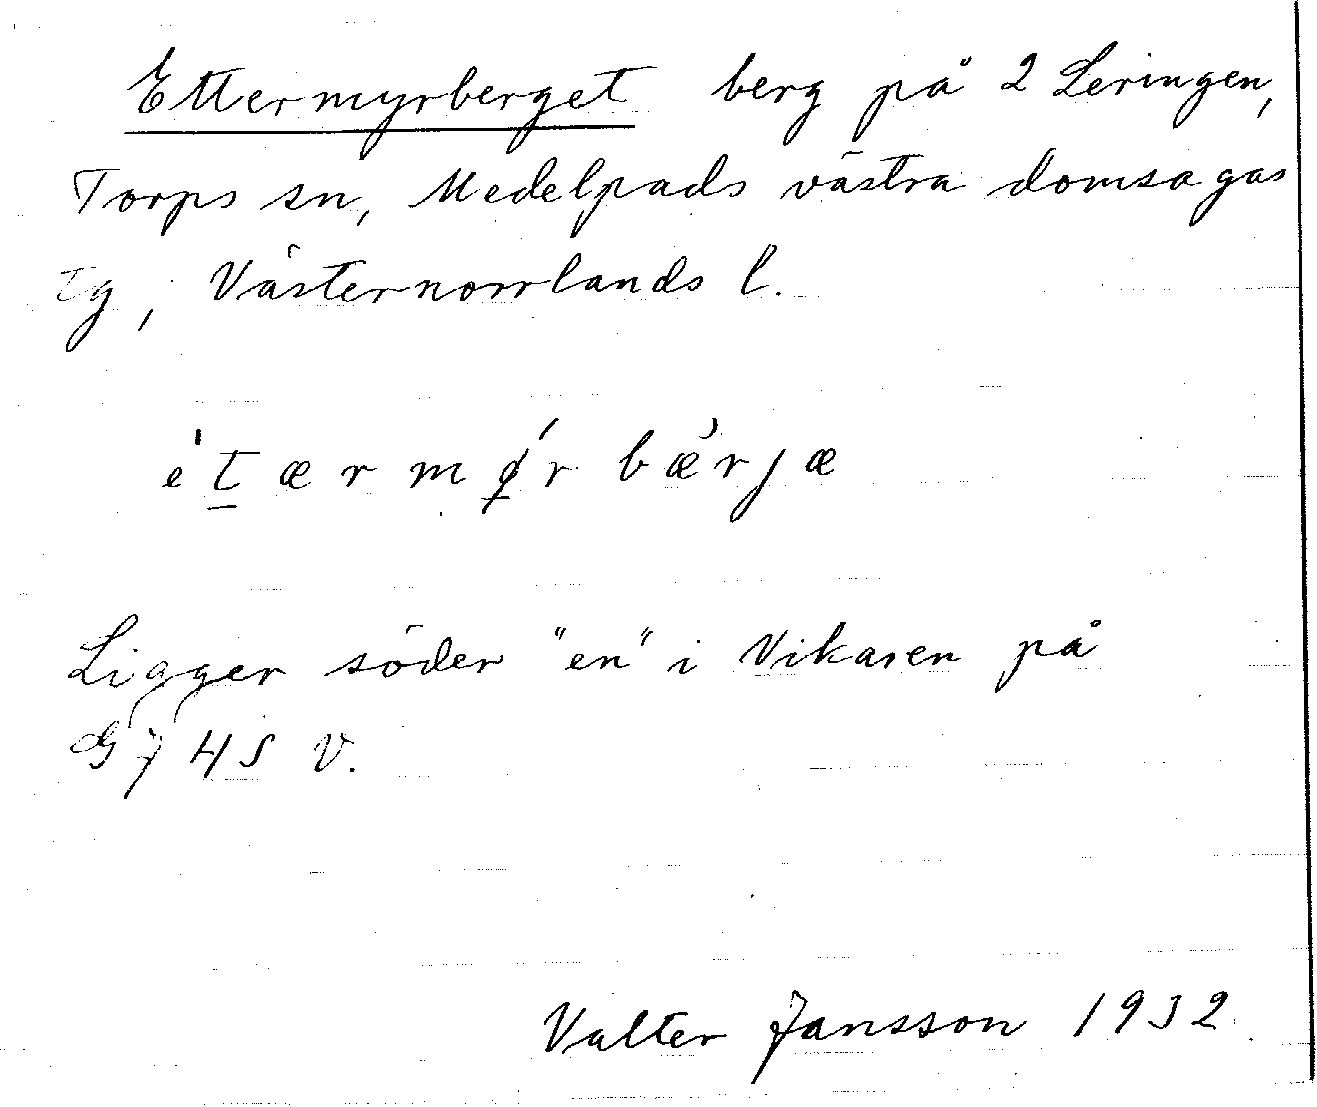 Ettermyrberget berg på 2 Leringen,
Torps sn, Medelpads västra domsagas
tg, Västernorrlands l.
étærmǿr bǽrjæ
Ligger söder "en" i Vikaren på
G 7 45 V.
Valter Jansson 1932.